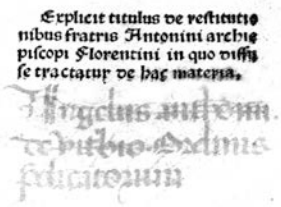 Explicit titulus de restitutio
nibus fratris Antonini archie
piscopi Florentini in quo diffu
se tractatur de hac materia.
Angelus anthoni
de
Ordinis